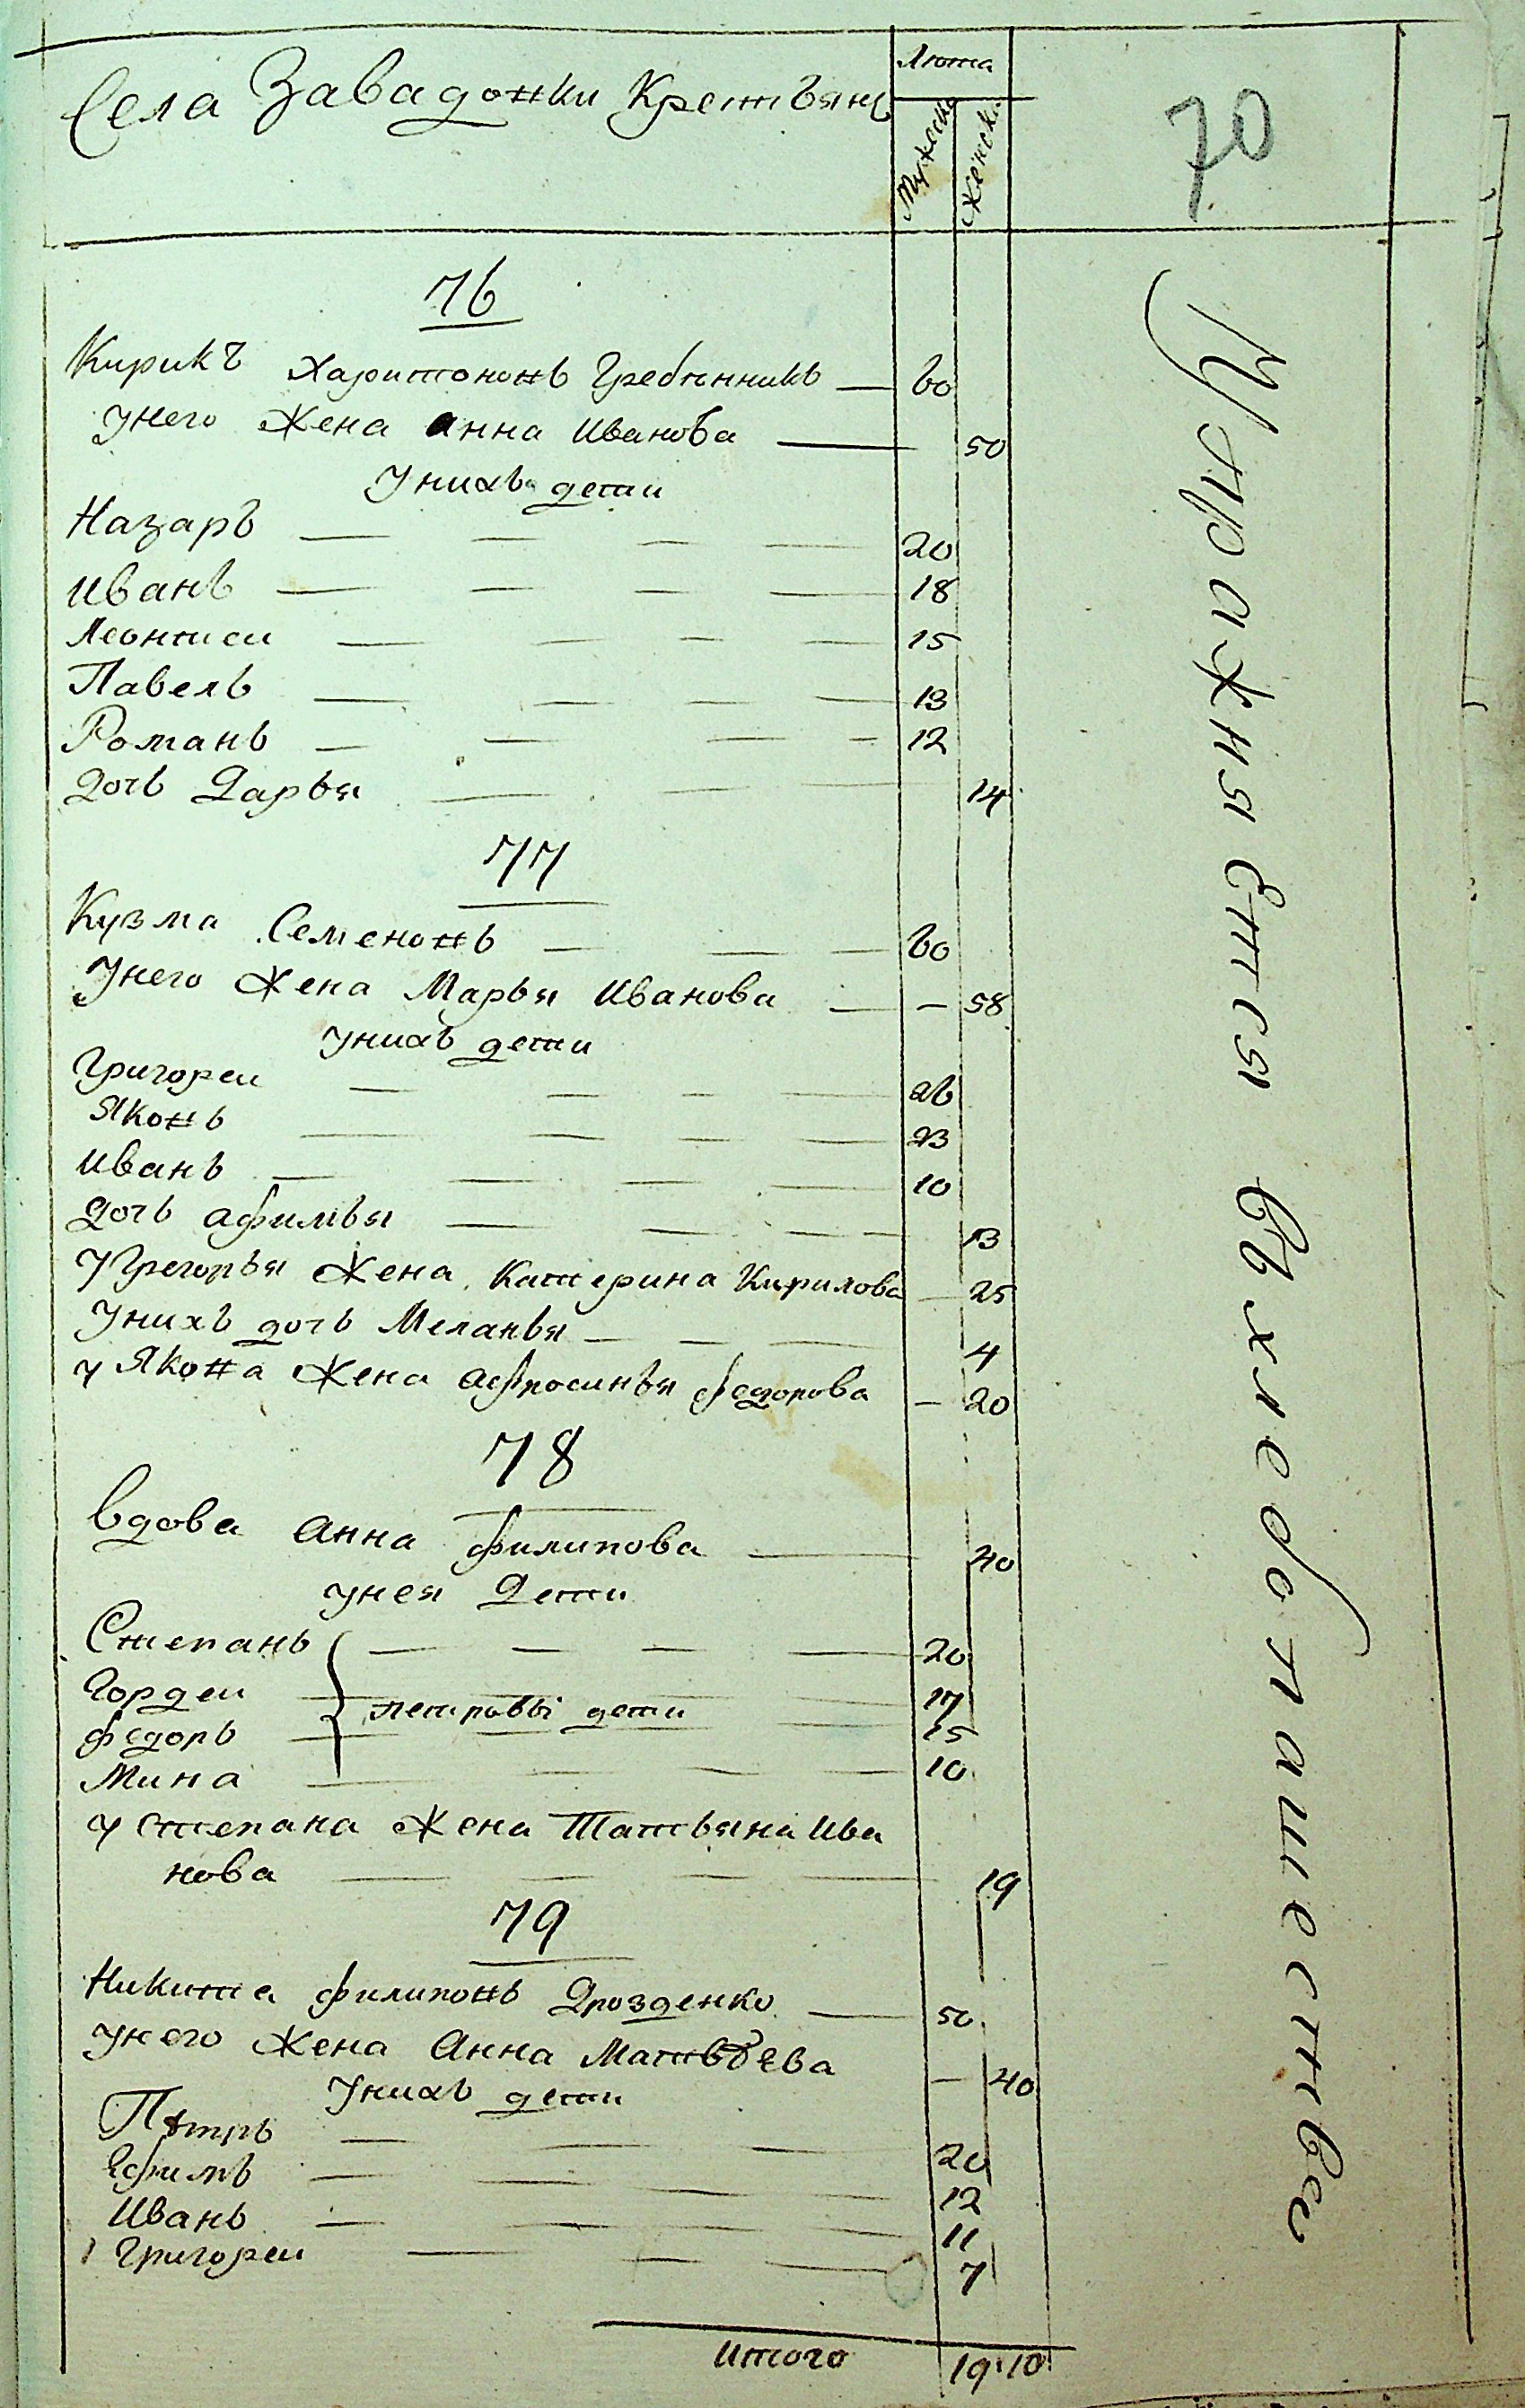 Села Завадовки Крестьянъ
Лѣта
Мужеска
Женска
70
76
Кирикъ Харитоновъ Гребѣнникъ — 60
Унего Жена Анна Иванова — 50
Унихъ дети
Назаръ — 20
Иванъ — 18
Леонтиеи — 15
Павелъ — 13
Романъ — 12
Дочь Дарья — 14
77
Кузма Семеновъ — 60
Унего Жена Марья Иванова — 58
Унихъ дети
Григореи — 26
Яковъ — 23
Иванъ — 10
Дочь Афимья — 13
У Грегорья Жена Катерина Кирилова — 25
Унихъ дочь Меланья — 4
у Якова Жена Афросинья федорова — 20
78
Вдова Анна Филипова — 40
унея Дети
Степанъ — 20
Гордеи — 17
петровы дети
федоръ — 15
Мина — 10
у Степана Жена Татьяна Ива
нова — 19
79
Никита Филиповъ Дрозденко — 50
Унего Жена Анна Матвѣева — 40
Унихъ дети
Петръ — 20
Ефимъ — 12
Иванъ — 11
Григореи — 7
Итого 19 10
Упражняется въ хлебопашестве